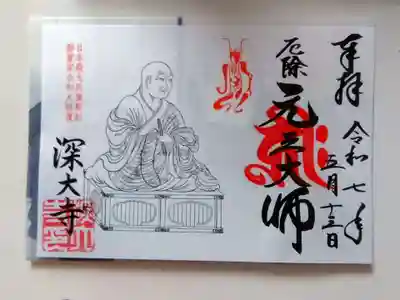 奉拝
令和七年
五月十三日
厄除
元三大師
深大寺